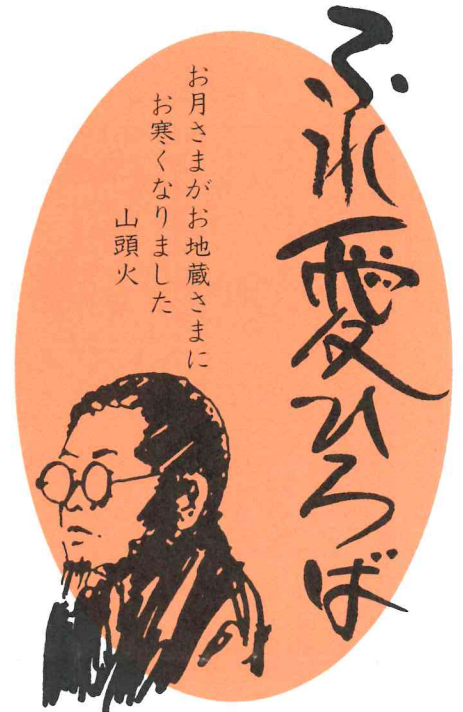 ふれ愛ひろば
お月さまがお地蔵さまに
お寒くなりました
山頭火